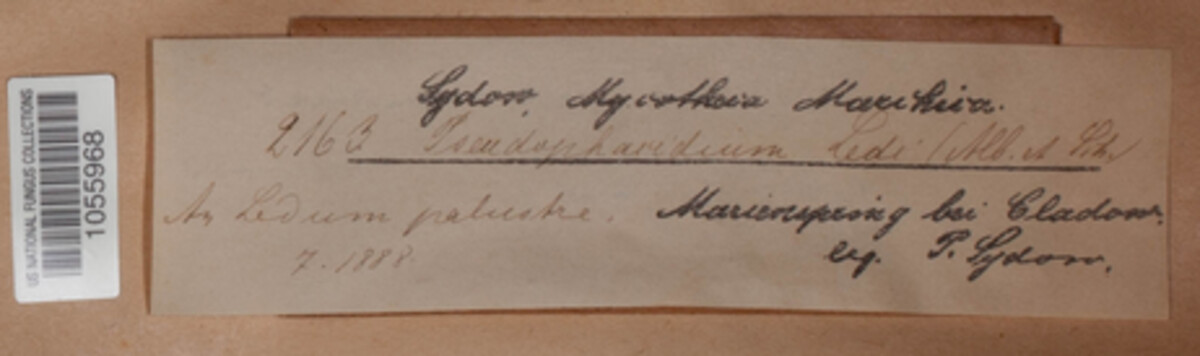 Sydow, Mycotheca Marchica.
2163 Pseudophacidium Ledi (Alb. et Sch.)
An Ledum palustre. Marienspring bei Cladow.
7. 1888 leg. P. Sydow.
US NATIONAL FUNGUS COLLECTIONS
1055968